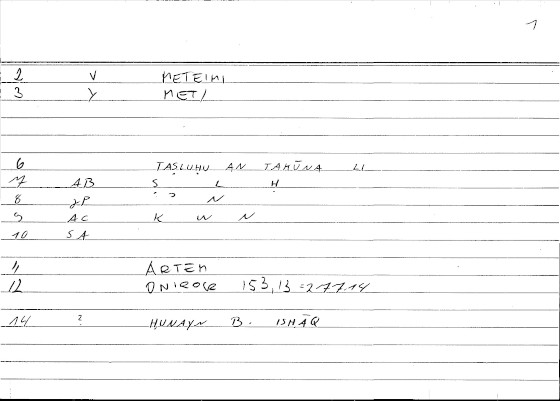 1
2 V METEIMI
3 Y METI
6 TAṢLUḤU AN TAKŪNA LI
7 AB Ṣ L Ḥ
8 gP N
9 AC K W N
10 SA
11 ARTEM
12 ONIROCR 153,13 = 277.14
14 ? ḤUNAYN B. ISḤĀQ